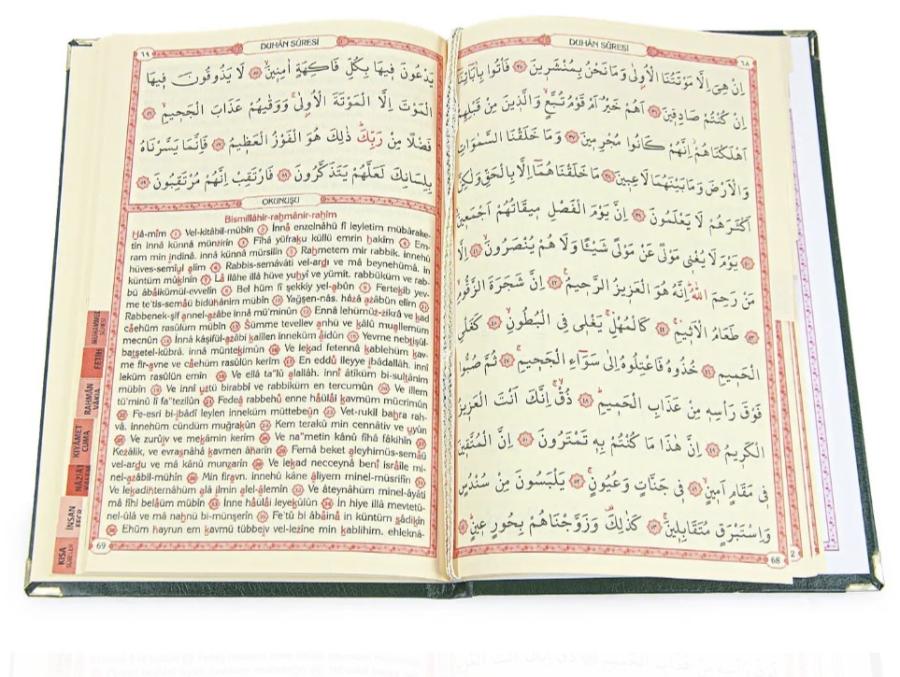 DUHÂN SÛRESİ
٦٨
اِنْ هِىَ اِلَّا مَوْتَتُنَا الْاُولٰى وَمَا نَحْنُ بِمُنْشَرِينَ ﴿٣٥﴾ فَأْتُوا بِاٰبَائِنَا
اِنْ كُنْتُمْ صَادِقِينَ ﴿٣٦﴾ اَهُمْ خَيْرٌ اَمْ قَوْمُ تُبَّعٍ وَالَّذِينَ مِنْ قَبْلِهِمْ
اَهْلَكْنَاهُمْ اِنَّهُمْ كَانُوا مُجْرِمِينَ ﴿٣٧﴾ وَمَا خَلَقْنَا السَّمٰوَاتِ
وَالْاَرْضَ وَمَا بَيْنَهُمَا لَاعِبِينَ ﴿٣٨﴾ مَا خَلَقْنَاهُمَا اِلَّا بِالْحَقِّ وَلٰكِنَّ
اَكْثَرَهُمْ لَا يَعْلَمُونَ ﴿٣٩﴾ اِنَّ يَوْمَ الْفَصْلِ مِيقَاتُهُمْ اَجْمَعِينَ
﴿٤٠﴾ يَوْمَ لَا يُغْنِى مَوْلًى عَنْ مَوْلًى شَيْئًا وَلَا هُمْ يُنْصَرُونَ ﴿٤١﴾ اِلَّا
مَنْ رَحِمَ اللّٰهُ اِنَّهُ هُوَ الْعَزِيزُ الرَّحِيمُ ﴿٤٢﴾ اِنَّ شَجَرَةَ الزَّقُّومِ
﴿٤٣﴾ طَعَامُ الْاَثِيمِ ﴿٤٤﴾ كَالْمُهْلِ يَغْلِى فِى الْبُطُونِ ﴿٤٥﴾ كَغَلْىِ
الْحَمِيمِ ﴿٤٦﴾ خُذُوهُ فَاعْتِلُوهُ اِلٰى سَوَاءِ الْجَحِيمِ ﴿٤٧﴾ ثُمَّ صُبُّوا
فَوْقَ رَأْسِهِ مِنْ عَذَابِ الْحَمِيمِ ﴿٤٨﴾ ذُقْ اِنَّكَ اَنْتَ الْعَزِيزُ
الْكَرِيمُ ﴿٤٩﴾ اِنَّ هٰذَا مَا كُنْتُمْ بِهِ تَمْتَرُونَ ﴿٥٠﴾ اِنَّ الْمُتَّقِينَ
فِى مَقَامٍ اَمِينٍ ﴿٥١﴾ فِى جَنَّاتٍ وَعُيُونٍ ﴿٥٢﴾ يَلْبَسُونَ مِنْ سُنْدُسٍ
وَاِسْتَبْرَقٍ مُتَقَابِلِينَ ﴿٥٣﴾ كَذٰلِكَ وَزَوَّجْنَاهُمْ بِحُورٍ عِينٍ ﴿٥٤﴾
68
2
DUHÂN SÛRESİ
٦٩
يَدْعُونَ فِيهَا بِكُلِّ فَاكِهَةٍ اٰمِنِينَ ﴿٥٥﴾ لَا يَذُوقُونَ فِيهَا
الْمَوْتَ اِلَّا الْمَوْتَةَ الْاُولٰى وَوَقٰيهُمْ عَذَابَ الْجَحِيمِ ﴿٥٦﴾
فَضْلًا مِنْ رَبِّكَ ذٰلِكَ هُوَ الْفَوْزُ الْعَظِيمُ ﴿٥٧﴾ فَاِنَّمَا يَسَّرْنَاهُ
بِلِسَانِكَ لَعَلَّهُمْ يَتَذَكَّرُونَ ﴿٥٨﴾ فَارْتَقِبْ اِنَّهُمْ مُرْتَقِبُونَ ﴿٥٩﴾
OKUNUŞU
Bismillâhir-rahmânir-rahîm
Hâ-mîm (1) Vel-kitâbil-mübîn (2) İnnâ enzelnâhü fî leyletim mübârake-
tin innâ künnâ münzirîn (3) Fîhâ yüfraku küllü emrin hakîm (4) Em-
ram min ındinâ, innâ künnâ mürsilîn (5) Rahmetem mir rabbik, innehü
hüves-semîul alîm (6) Rabbis-semâvâti vel-ardı ve mâ beynehümâ, in
küntüm mûkınîn (7) Lâ ilâhe illâ hüve yuhyî ve yümît, rabbüküm ve rab-
bü âbâikümül-evvelîn (8) Bel hüm fî şekkiy yel-abûn (9) Fertekıb yev-
me te'tis-semâü bidühânim mübîn (10) Yağşen-nâs, hâzâ azâbün elîm (11)
Rabbenek-şif annel-azâbe innâ mü'minûn (12) Ennâ lehümüz-zikrâ ve kad
câehüm rasûlüm mübîn (13) Sümme tevellev anhü ve kâlû muallemüm
mecnûn (14) İnnâ kâşifül-azâbi kalîlen inneküm âidûn (15) Yevme nebtışül-
batşetel-kübrâ, innâ müntekımûn (16) Ve lekad fetennâ kablehüm kav-
me fir-avne ve câehüm rasûlün kerîm (17) En eddû ileyye ıbâdallâh, innî
leküm rasûlün emîn (18) Ve ellâ ta"lû alallâh, innî âtîküm bi-sultânim
mübîn (19) Ve innî uztü birabbî ve rabbiküm en tercumûn (20) Ve illem
tü'minû lî fa"tezilûn (21) Fedeâ rabbehû enne hâülâi kavmüm mücrimûn
(22) Fe-esri bi-ıbâdî leylen inneküm müttebeûn (23) Vet-rukil bahra rah-
vâ, innehüm cündüm muğrakûn (24) Kem terakû min cennâtiv ve uyûn
(25) Ve zurûıv ve mekâmin kerîm (26) Ve na"metin kânû fîhâ fâkihîn (27)
Kezâlik, ve evrasnâhâ kavmen âharîn (28) Femâ beket aleyhimüs-semâü
vel-ardu ve mâ kânû munzarîn (29) Ve lekad necceynâ benî isrâîle mi-
nel-azâbil-mühîn (30) Min firavn, innehû kâne âliyem minel-müsrifîn (31)
Ve lekadihternâhüm alâ ılmin alel-âlemîn (32) Ve âteynâhüm minel-âyâti
mâ fîhi belâüm mübîn (33) İnne hâülâi leyekûlûn (34) İn hiye illâ mevtetü-
nel-ûlâ ve mâ nahnü bi-münşerîn (35) Fe'tû bi âbâinâ in küntüm sâdikîn
(36) Ehüm hayrun em kavmü tübbeıv vel-lezîne min kablihim, ehleknâ-
69
FETİH
RAHMÂN
VÂKIA
KIYÂMET
CUMA
NÂZİÂT
İNSAN
KISA